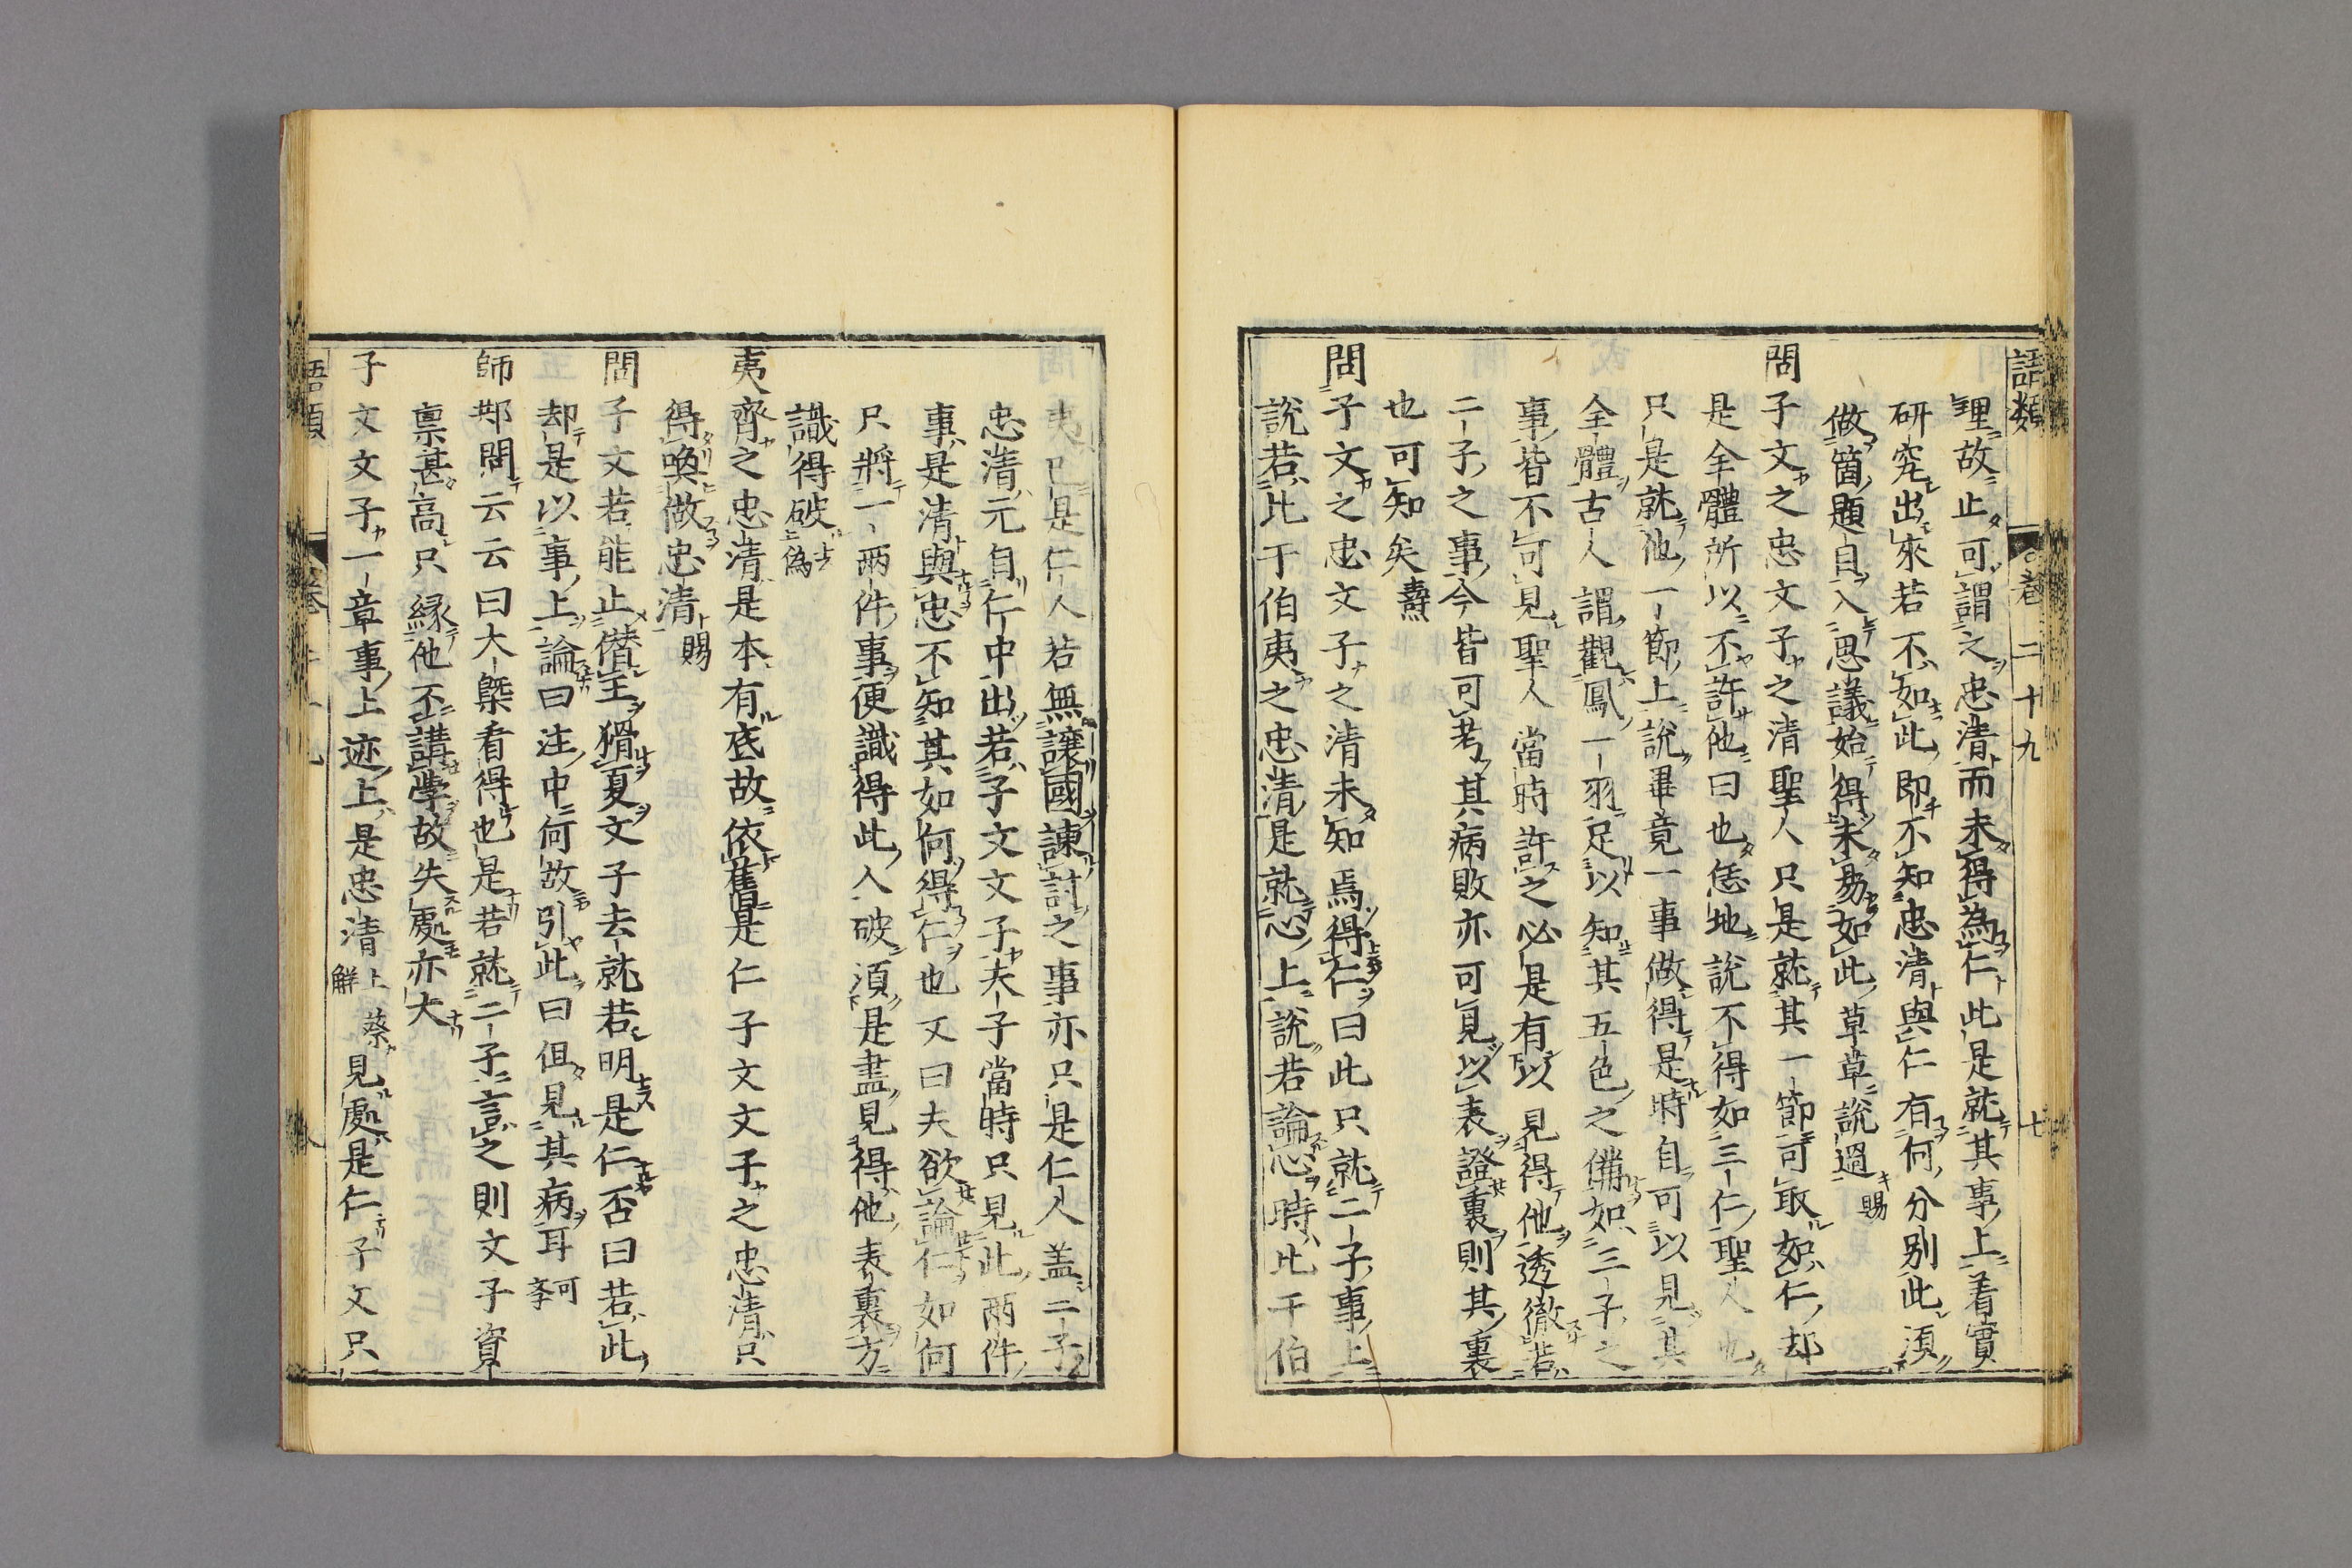 語類 卷二十九 七
理故止可謂之忠清而未得爲仁此是就其事上着實
研究出來若不如此即不知忠清與仁有何分別此須
做箇題目入思議始得未易如此草草說過賜
問子文之忠文子之清聖人只是就其一節可取如仁却
是全體所以不許他曰也恁地說不得如三仁聖人也
只是就他一節上說畢竟一事做得是時自可以見其
全體古人謂觀鳳一羽足以知其五色之備如三子之
事皆不可見聖人當時許之必是有以見得他透徹若
二子之事今皆可考其病敗亦可見以表證裏則其裏
也可知矣燾
問子文之忠文子之清未知焉得仁曰此只就二子事上
說若比干伯夷之忠清是就心上說若論心時比干伯
夷已是仁人若無讓國諫討之事亦只是仁人盖二子
忠清元自仁中出若子文文子夫子當時只見此兩件
事是清與忠不知其如何得仁也又曰夫欲論仁如何
只將一兩件事便識得此人破須是盡見得他表裏方
識得破僞
夷齊之忠清是本有底故依舊是仁子文文子之忠清只
得喚做忠清賜
問子文若能止僭王猾夏文子去就若明是仁否曰若此
却是以事上論曰注中何故引此曰但見其病耳可學
師邦問云云曰大槩看得也是若就二子言之則文子資
禀甚高只緣他不講學故失處亦大
子文文子一章事上迹上是忠清上蔡解見處是仁子文只